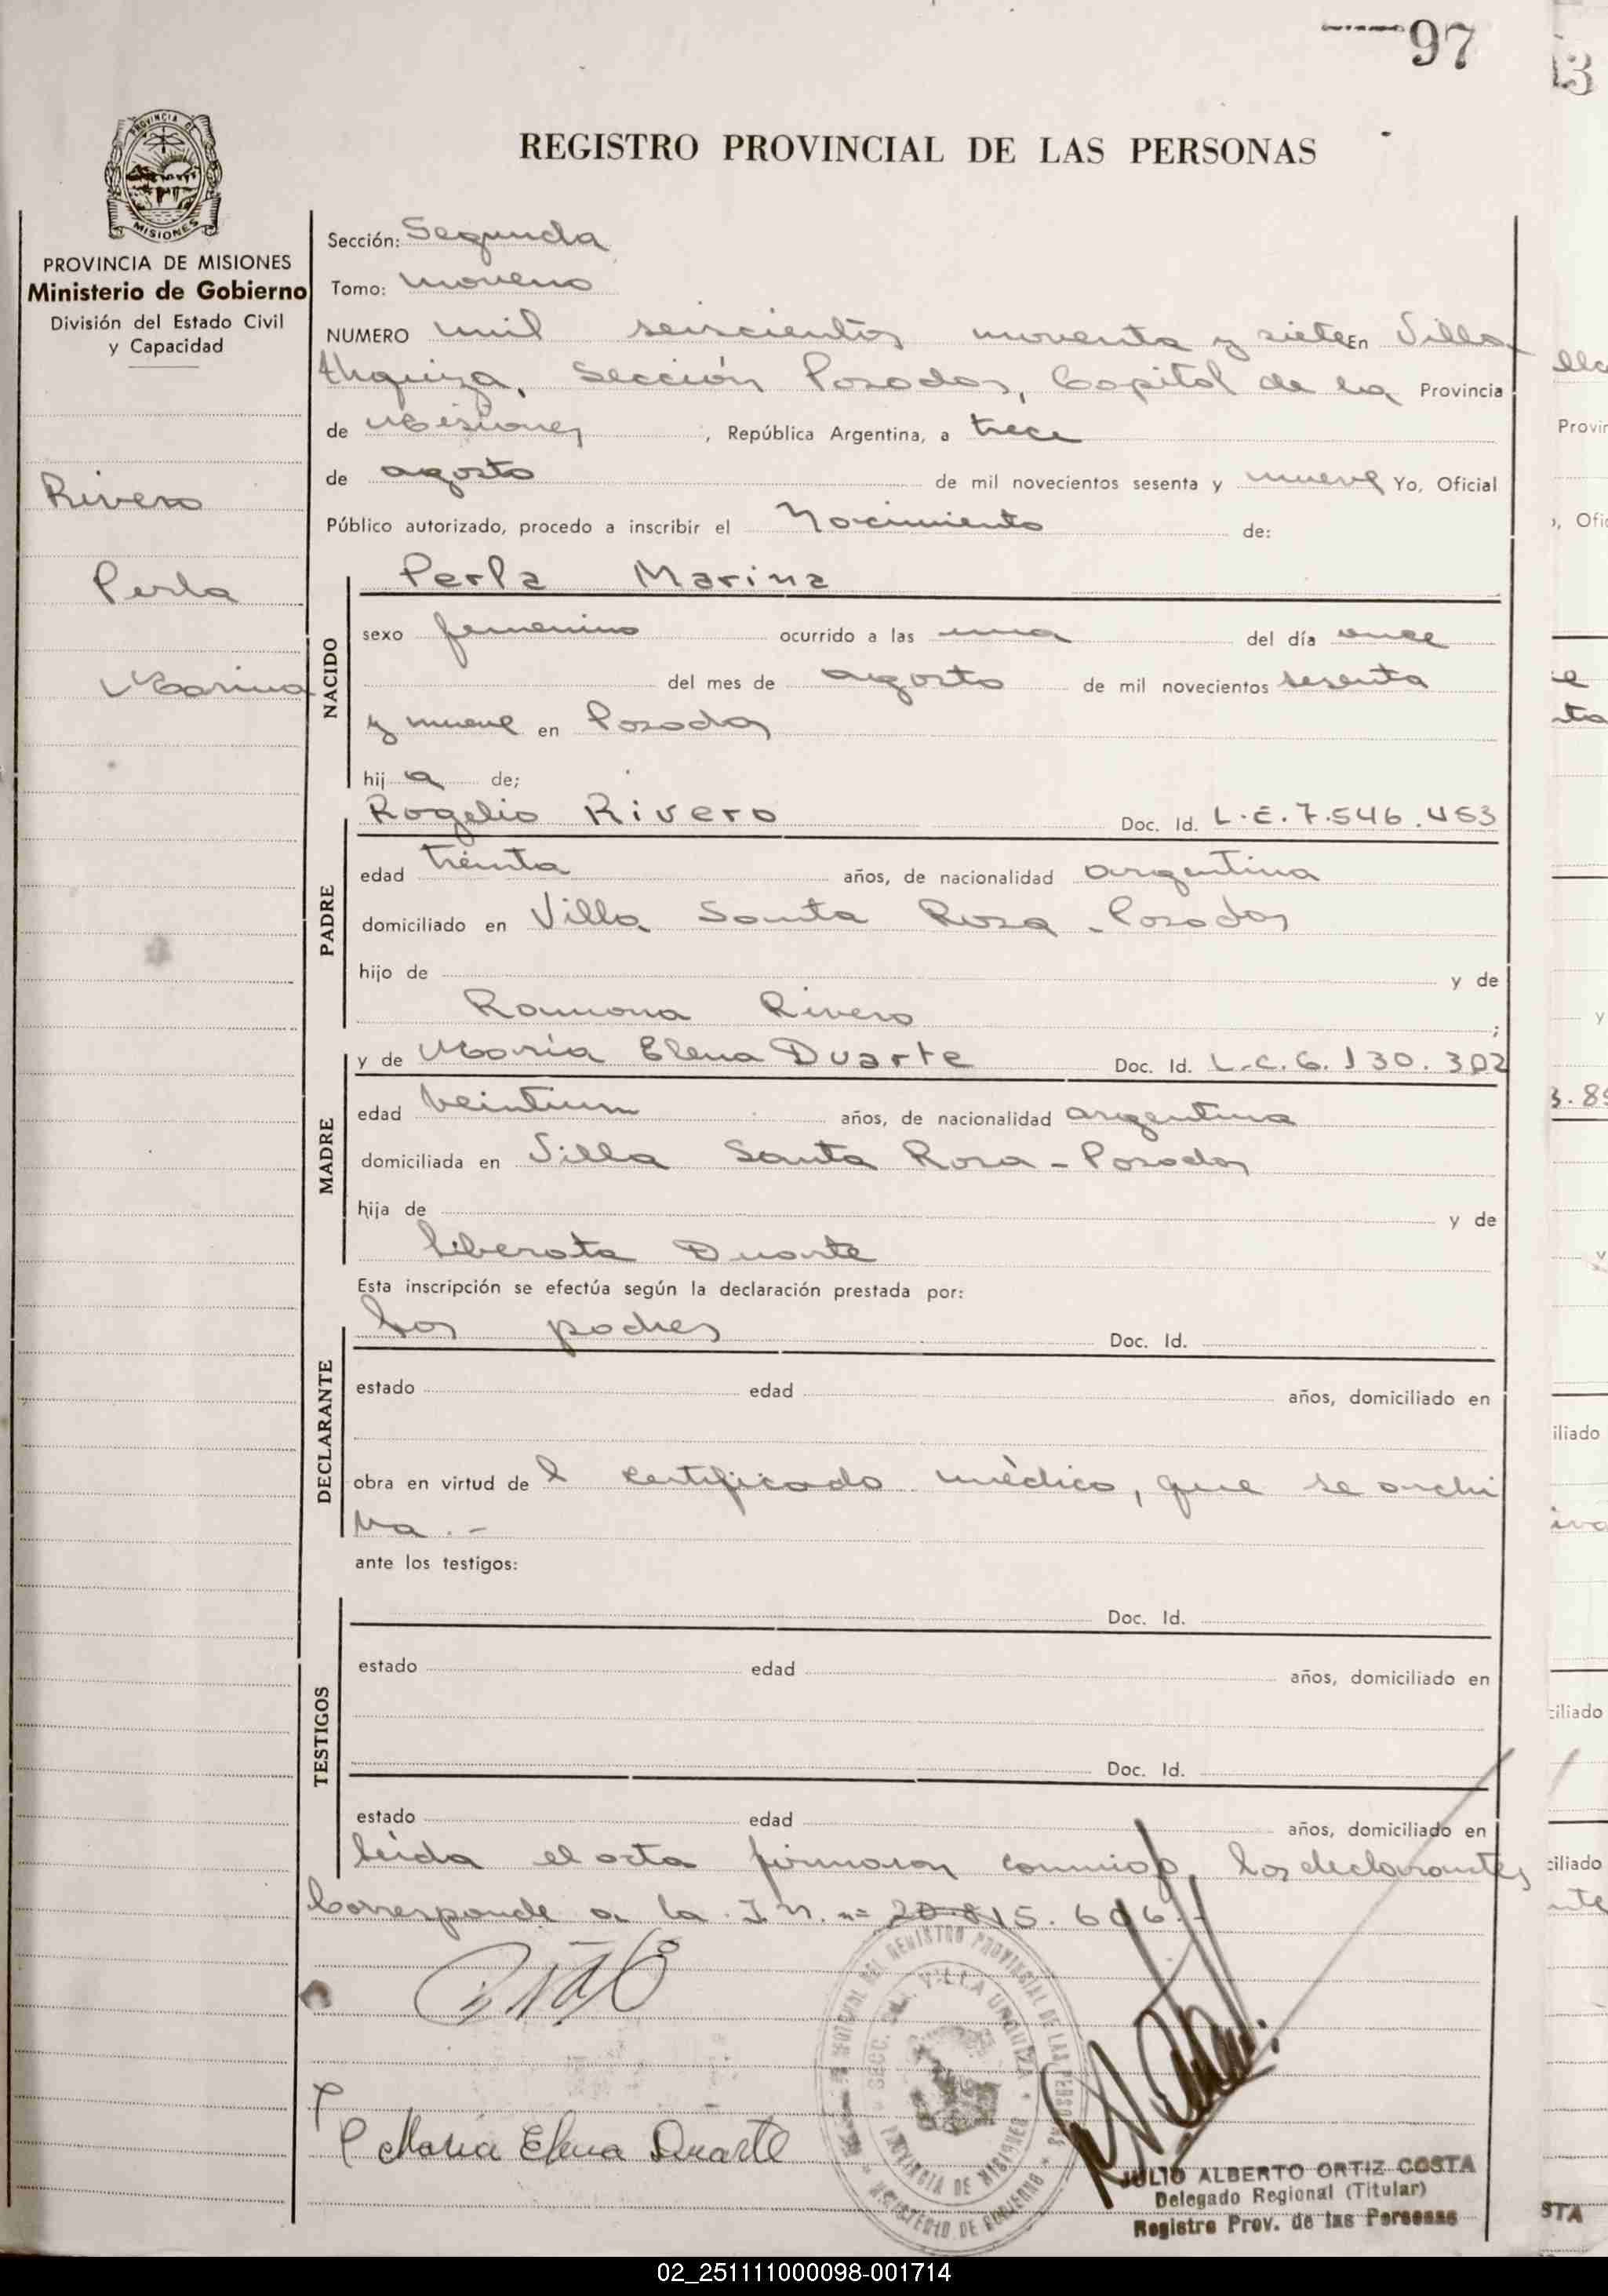 97
13
REGISTRO PROVINCIAL DE LAS PERSONAS
PROVINCIA DE
MISIONES
PROVINCIA DE MISIONES
Ministerio de Gobierno
División del Estado Civil
y Capacidad
Rivero
Perla
Marina
Sección: Segunda
Tomo: noveno
NUMERO mil seiscientos noventa y siete En Villa
Urquiza, Sección Posadas, Capital de la Provincia
de Misiones, República Argentina, a trece
de agosto de mil novecientos sesenta y nueve Yo, Oficial
Público autorizado, procedo a inscribir el Nacimiento de:
Perla Marina
NACIDO
sexo femenino ocurrido a las una del día once
del mes de agosto de mil novecientos sesenta
y nueve en Posadas
hija de;
Rogelio Rivero Doc. Id. L.E. 7.546.453
PADRE
edad treinta años, de nacionalidad argentina
domiciliado en Villa Santa Rosa - Posadas
hijo de y de
Ramona Rivero ;
y de María Elena Duarte Doc. Id. L.C. 6.130.302
MADRE
edad veintiun años, de nacionalidad argentina
domiciliada en Villa Santa Rosa - Posadas
hija de y de
Liberata Duarte
Esta inscripción se efectúa según la declaración prestada por:
Los padres Doc. Id.
DECLARANTE
estado edad años, domiciliado en
obra en virtud de l certificado médico, que se archi
va.-
ante los testigos:
Doc. Id.
TESTIGOS
estado edad años, domiciliado en
Doc. Id.
estado edad años, domiciliado en
Leida el acta firmaron conmigo, los declarantes
Corresponde a la I N. nº 20.815.606.-
María Elena Duarte
SECC. 2a. VILLA URQUIZA
PROVINCIA DE MISIONES
REGISTRO PROVINCIAL DE LAS PERSONAS
MINISTERIO DE GOBIERNO
JULIO ALBERTO ORTIZ COSTA
Delegado Regional (Titular)
Registro Prov. de las Personas
STA
02_251111000098-001714